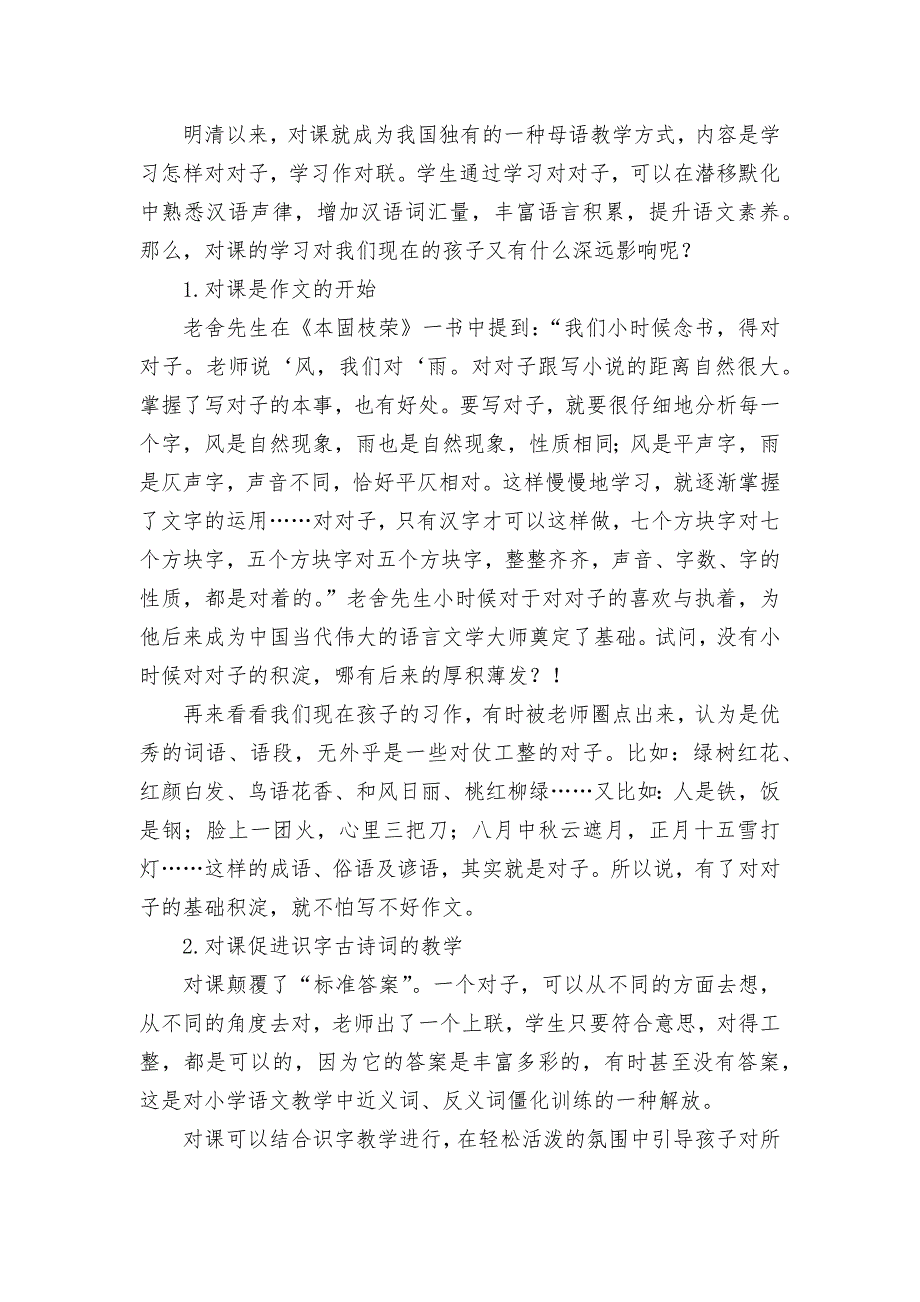 明清以来，对课就成为我国独有的一种母语教学方式，内容是学
习怎样对对子，学习作对联。学生通过学习对对子，可以在潜移默化
中熟悉汉语声律，增加汉语词汇量，丰富语言积累，提升语文素养。
那么，对课的学习对我们现在的孩子又有什么深远影响呢？
1.对课是作文的开始
老舍先生在《本固枝荣》一书中提到：“我们小时候念书，得对
对子。老师说‘风，我们对‘雨。对对子跟写小说的距离自然很大。
掌握了写对子的本事，也有好处。要写对子，就要很仔细地分析每一
个字，风是自然现象，雨也是自然现象，性质相同；风是平声字，雨
是仄声字，声音不同，恰好平仄相对。这样慢慢地学习，就逐渐掌握
了文字的运用……对对子，只有汉字才可以这样做，七个方块字对七
个方块字，五个方块字对五个方块字，整整齐齐，声音、字数、字的
性质，都是对着的。”老舍先生小时候对于对对子的喜欢与执着，为
他后来成为中国当代伟大的语言文学大师奠定了基础。试问，没有小
时候对对子的积淀，哪有后来的厚积薄发？！
再来看看我们现在孩子的习作，有时被老师圈点出来，认为是优
秀的词语、语段，无外乎是一些对仗工整的对子。比如：绿树红花、
红颜白发、鸟语花香、和风日丽、桃红柳绿……又比如：人是铁，饭
是钢；脸上一团火，心里三把刀；八月中秋云遮月，正月十五雪打
灯……这样的成语、俗语及谚语，其实就是对子。所以说，有了对对
子的基础积淀，就不怕写不好作文。
2.对课促进识字古诗词的教学
对课颠覆了“标准答案”。一个对子，可以从不同的方面去想，
从不同的角度去对，老师出了一个上联，学生只要符合意思，对得工
整，都是可以的，因为它的答案是丰富多彩的，有时甚至没有答案，
这是对小学语文教学中近义词、反义词僵化训练的一种解放。
对课可以结合识字教学进行，在轻松活泼的氛围中引导孩子对所